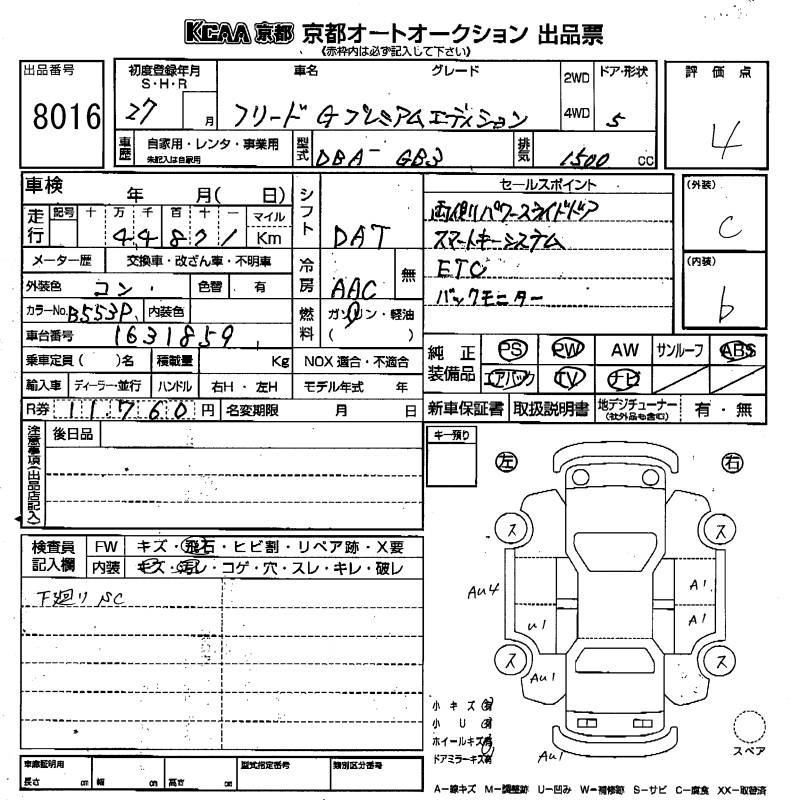 KCAA 京都 京都オートオークション 出品票
(赤枠内は必ず記入して下さい)
出品番号 8016
初度登録年月 S・H・R 27 月
車名 グレード
フリード Gプレミアムエディション
2WD 4WD
ドア・形状 5
評価点 4
車歴 自家用・レンタ・事業用 未記入は自家用
型式 DBA-GB3
排気 1500 cc
車検 年 月( 日)
走行 記号 十 万 千 百 十 一 マイル Km
44871
メーター歴 交換車・改ざん車・不明車
外装色 コン 色替 有
カラーNo. B553P 内装色
車台番号 1631859
乗車定員( )名 積載量 Kg
輸入車 ディーラー・並行 ハンドル 右H・左H
R券 11760 円 名変期限 月 日
シフト DAT
冷房 AAC 無
燃料 ガソリン・軽油 ( )
NOX 適合・不適合
モデル年式 年
セールスポイント
両側パワースライドドア
スマートキーシステム
ETC
バックモニター
(外装) C
(内装) b
純正装備品 PS PW AW サンルーフ ABS
エアバック TV ナビ
新車保証書 取扱説明書 地デジチューナー (社外品も含む) 有・無
注意事項(出品店記入)
後日品
キー預り
左 右
検査員記入欄
FW キズ・飛石・ヒビ割・リペア跡・X要
内装 キズ・汚レ・コゲ・穴・スレ・キレ・破レ
下廻り SC
ス ス
AU4 A1
U1 A1
ス ス
AU1
AU1
小キズ有
小U有
ホイールキズ有
ドアミラーキズ有
スペア
車庫証明用 長さ cm 幅 cm 高さ cm
型式指定番号 類別区分番号
A−線キズ M−調整跡 U−凹み W−補修跡 S−サビ C−腐食 XX−取替済